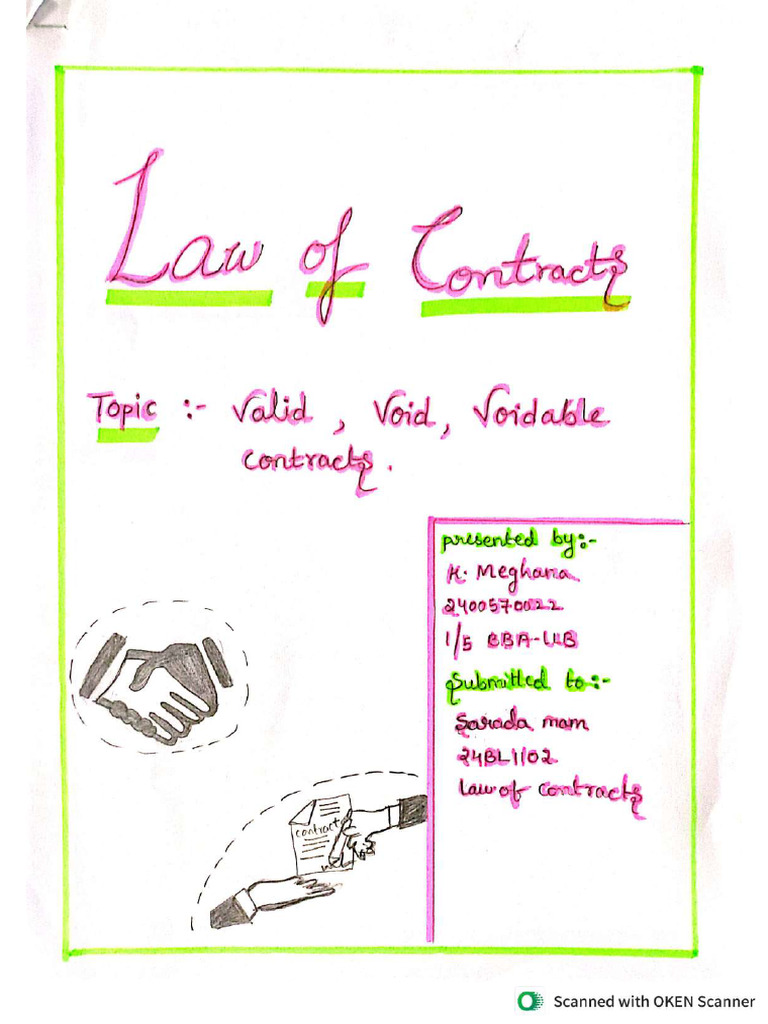 Law of Contracts
Topic :- Valid, Void, Voidable
contracts.
presented by:-
K. Meghana
2400570022
1/5 BBA-LLB
Submitted to:-
Sarada mam
24BL1102
Law of contracts
contract
Scanned with OKEN Scanner